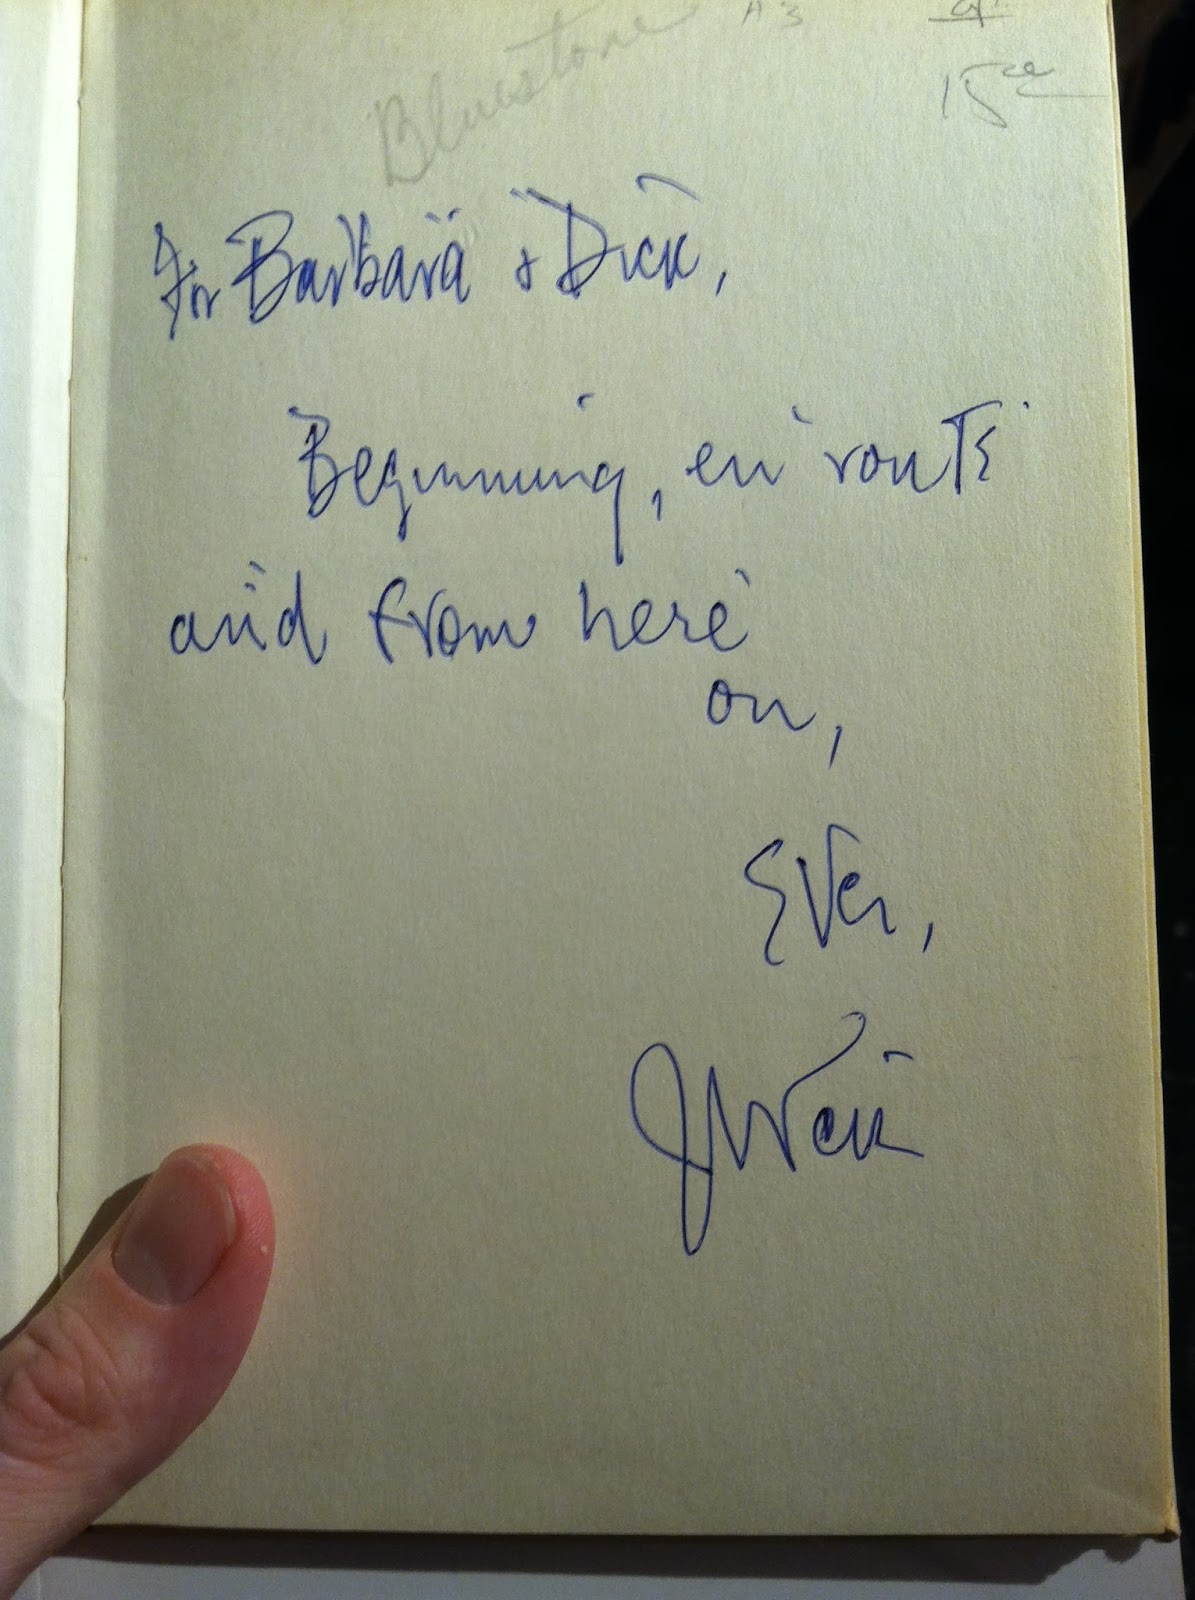 Bluestone A3
15
For Barbara & Dick,
Beginning, en route
and from here
on,
Ever,